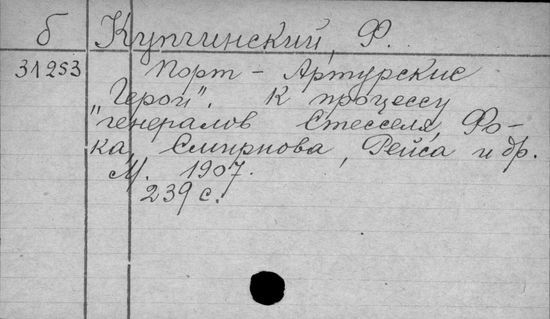 б Купчинский, Ф.
31253 Порт-Артурские
"Герои". К процессу
"генералов Стесселя, Фо-
ка, Смирнова, Рейса и др.
М. 1907.
239 с.